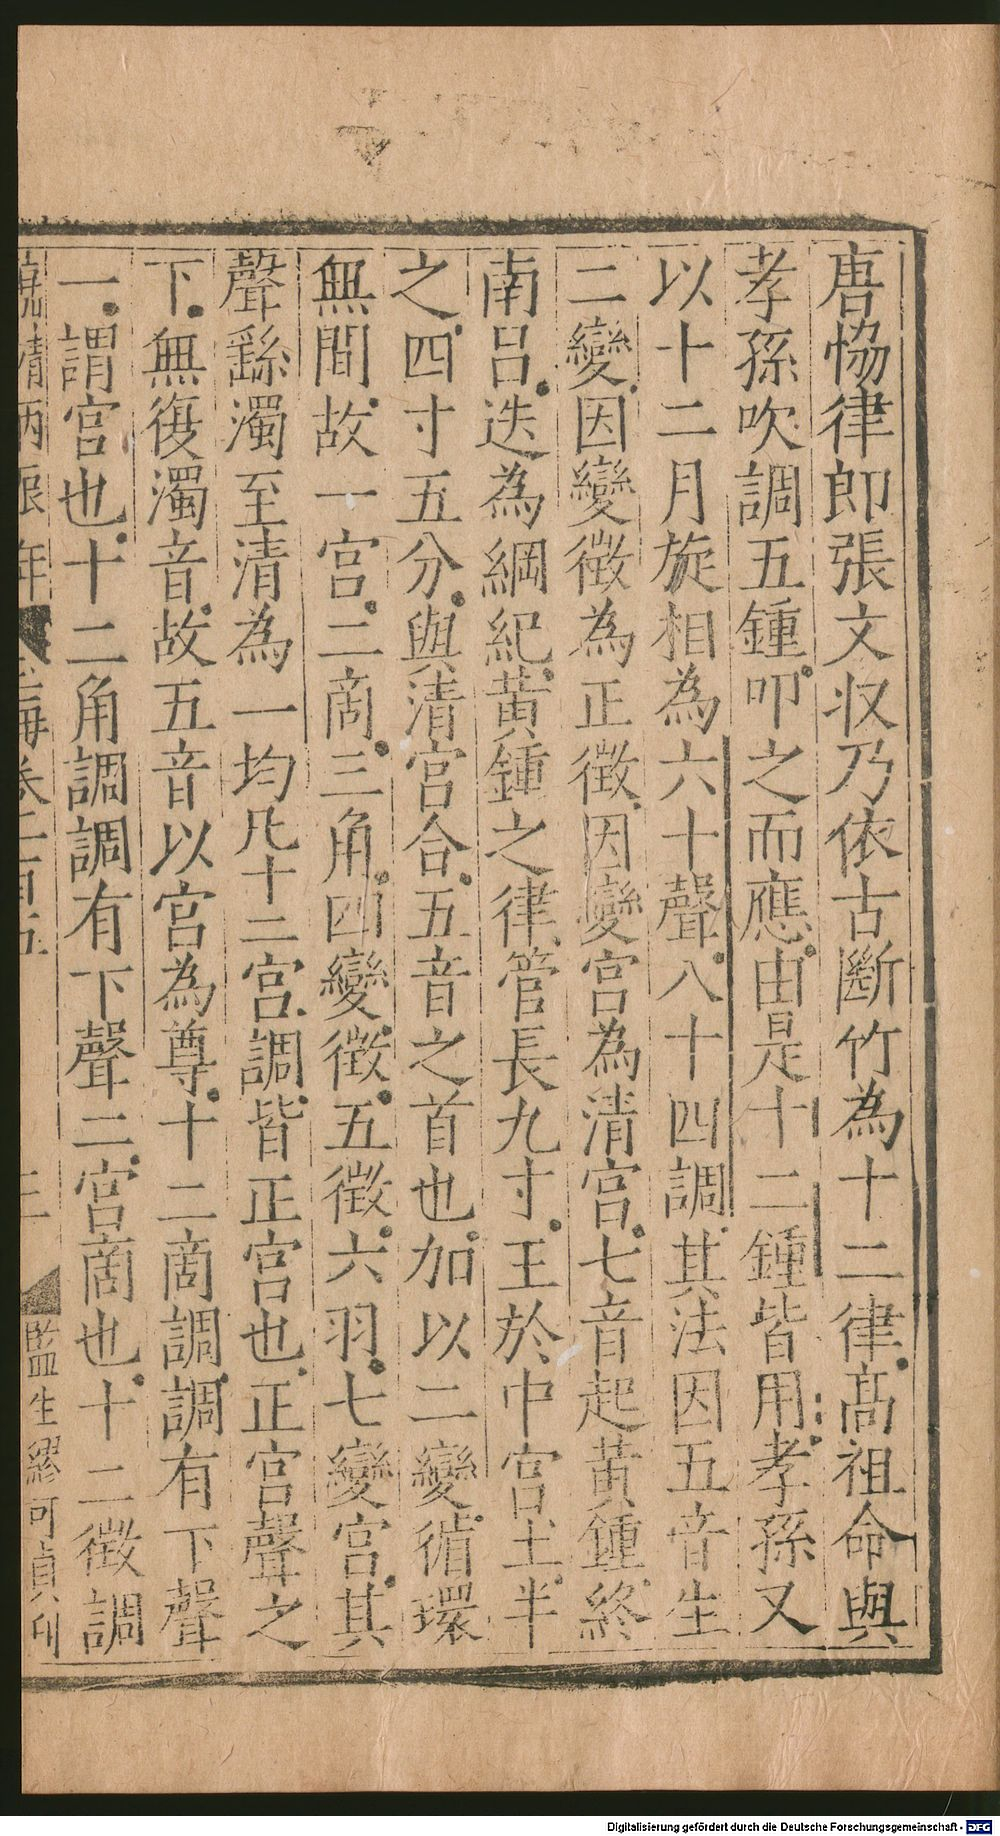 唐恊律郎張文収乃依古斷竹為十二律高祖命與
孝孫吹調五鍾叩之而應由是十二鍾皆用孝孫又
以十二月旋相為六十聲八十四調其法因五音生
二變因變徵為正徵因變宮為清宮七音起黃鍾終
南呂迭為綱紀黃鍾之律管長九寸王於中宮土半
之四寸五分與清宮合五音之首也加以二變循環
無間故一宮二商三角四變徵五徵六羽七變宮其
聲繇濁至清為一均凡十二宮調皆正宮也正宮聲之
下無復濁音故五音以宮為尊十二商調調有下聲
一謂宮也十二角調調有下聲二宮商也十二徵調
年
海卷二百五
三
監生繆可貞刊
Digitalisierung gefördert durch die Deutsche Forschungsgemeinschaft - DFG